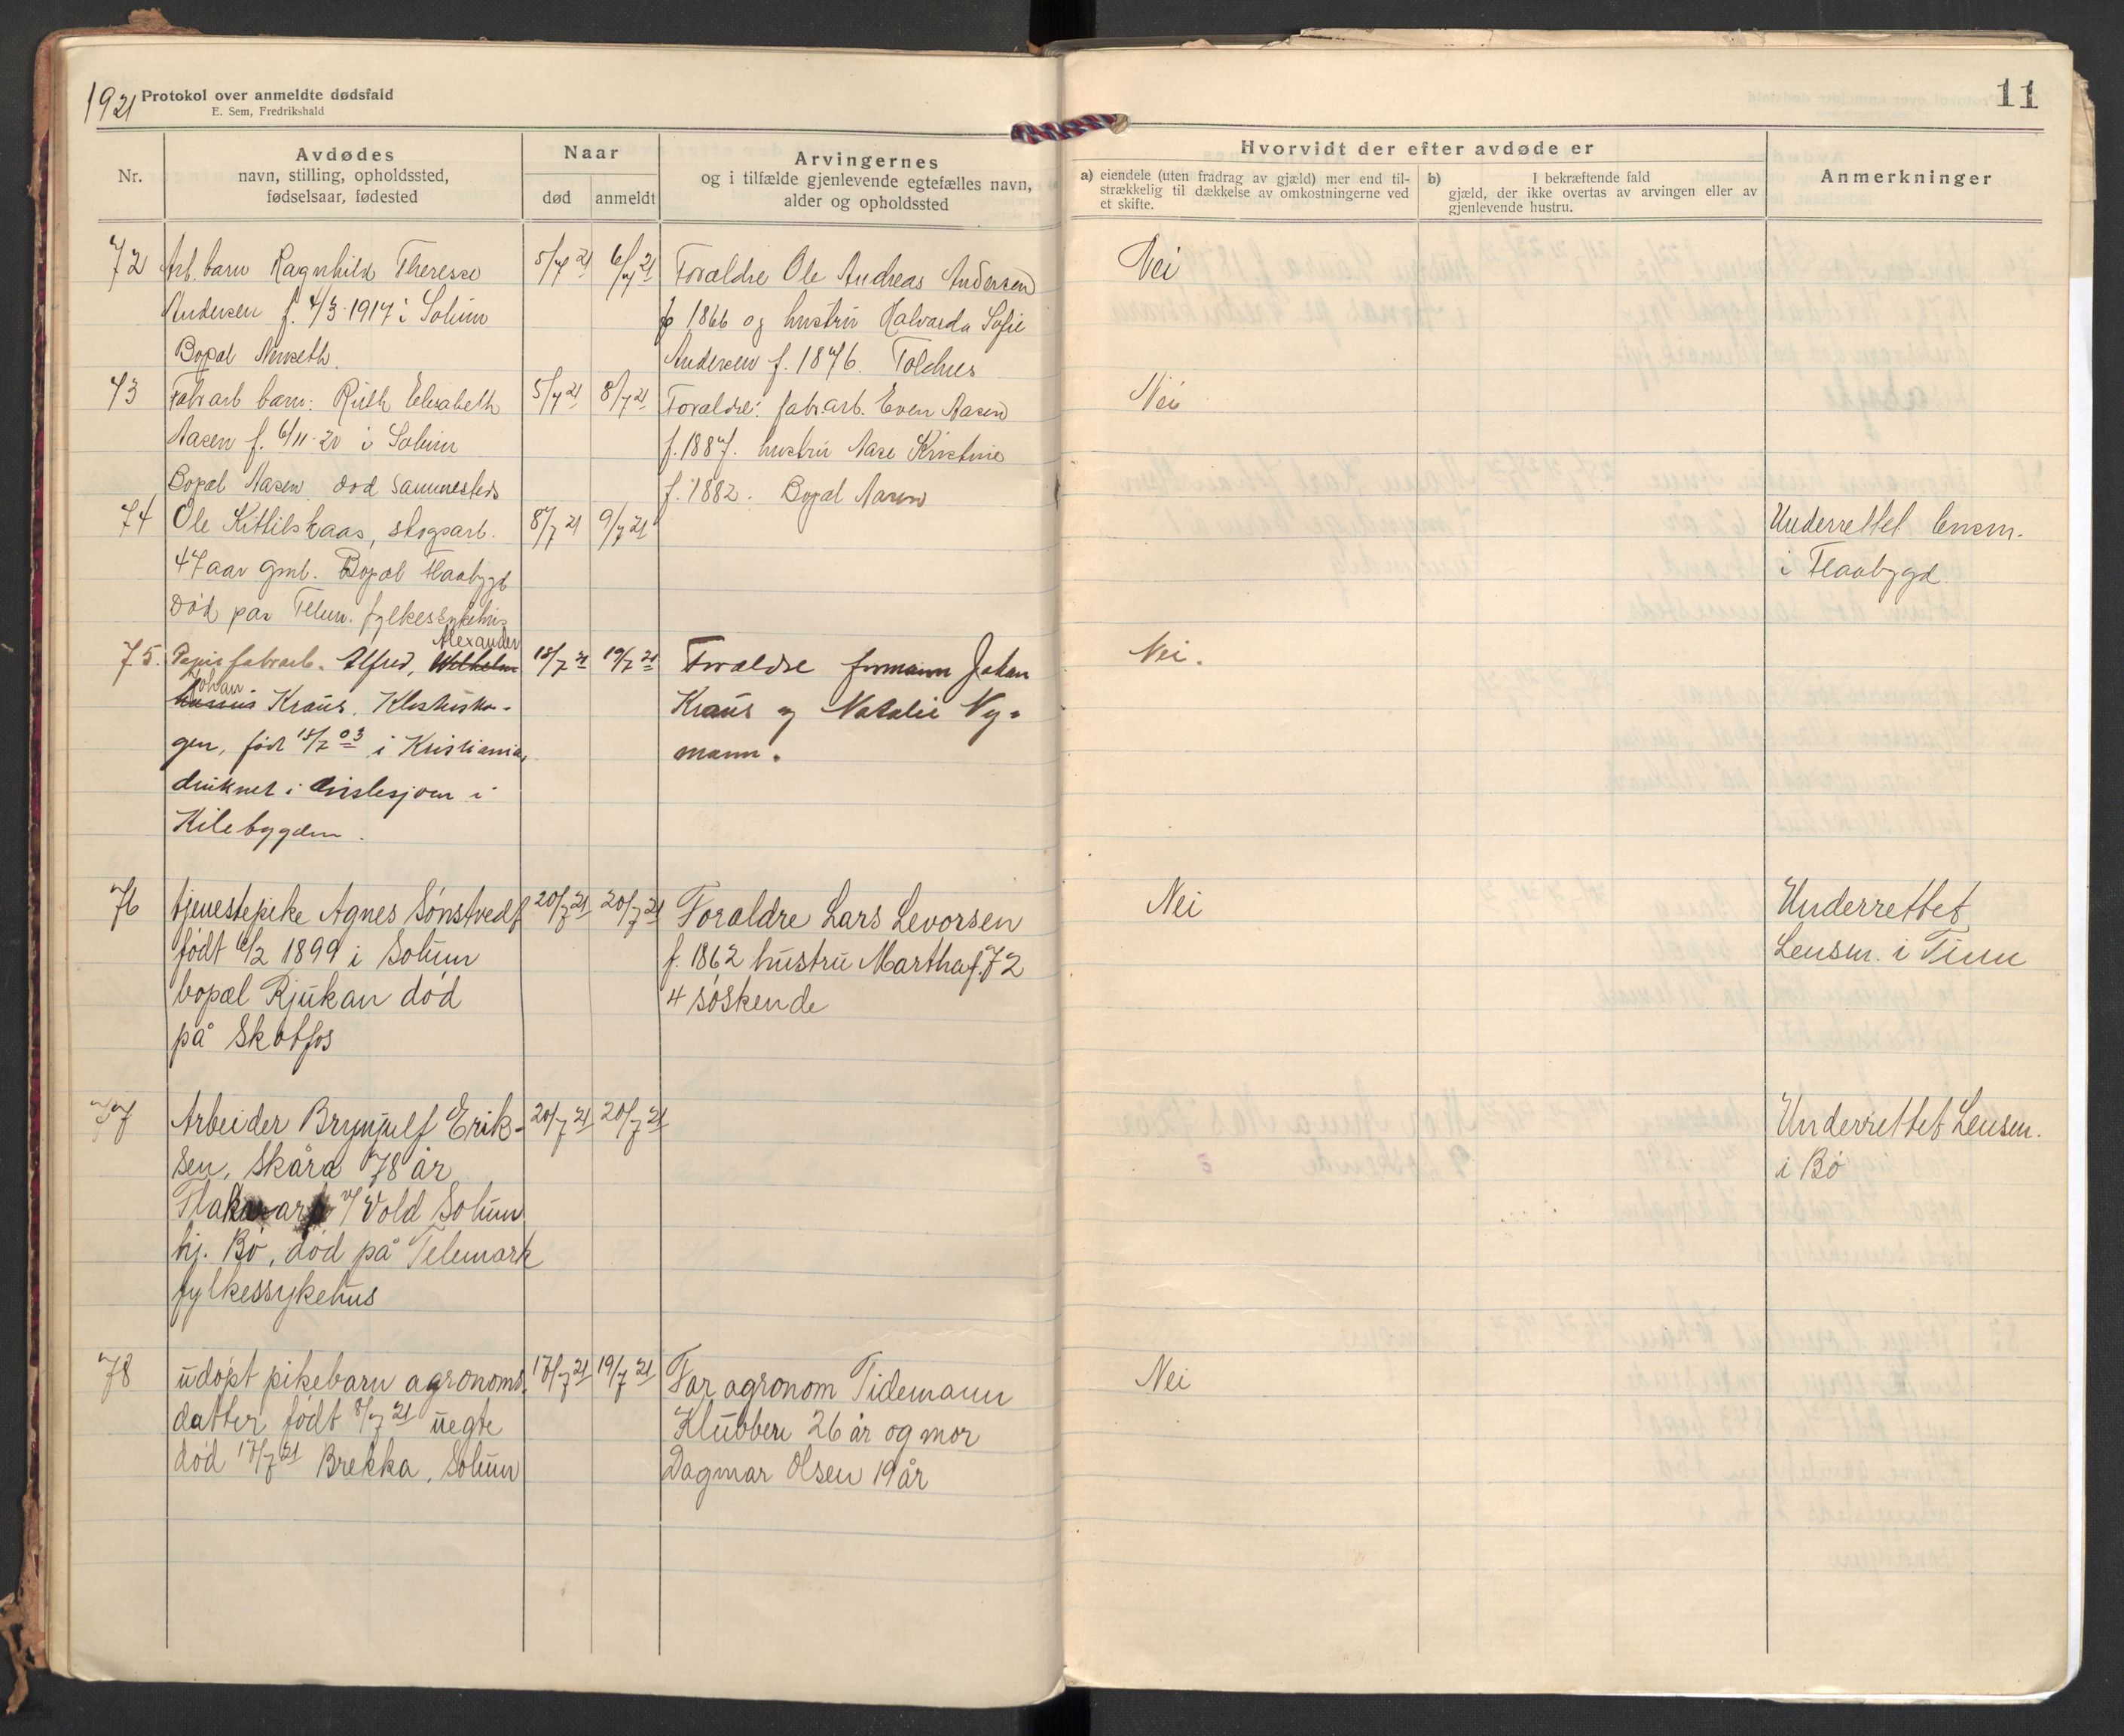 1921 Protokol over anmeldte dødsfald
E. Sem, Fredrikshald
11
Nr.
Avdødes
navn, stilling, opholdssted,
fødselsaar, fødested
Naar
død
anmeldt
Arvingernes
og i tilfælde gjenlevende egtefælles navn,
alder og opholdssted
Hvorvidt der efter avdøde er
a) eiendele (uten fradrag av gjæld) mer end til-
strækkelig til dækkelse av omkostningerne ved
et skifte.
b) I bekræftende fald
gjæld, der ikke overtas av arvingen eller av
gjenlevende hustru.
Anmerkninger
72
Arb. barn Ragnhild Therese
Andersen f. 4/3-1917 i Solum
Bopæl
5/7 21
6/7 21
Forældre Ole Andreas Andersen
f 1866 og hustru Halvarda Sofie
Andersen f. 1876. Toldnes
Nei
73
Fabr arb barn: Ruth Elisabeth
Aasen f. 6/11-20 i Solum
Bopæl Aasen død sammesteds
5/7 21
8/7 21
Forældre: fabr arb. Even Aasen
f. 1887. hustru Aase Kristine
f. 1882. Bopæl Aasen
Nei
74
Ole Kittilskaas, skogsarb.
47 aar gmb. Bopæl Flaabygd
Død paa Telem. fylkessykehus
8/7 21
9/7 21
Underrettet lensm.
i Flaabygd
75.
Alexander
Papirfabrarb. Alfred, Wilhelm
Johan
Kraus. Klostersko-
gen, født 15/7 03 i Kristiania,
druknet i i
Kilebygden.
18/7 21
19/7 21
Forældre formann Johan
Kraus og Natalie Ny-
mann.
Nei.
76
tjenestepike Agnes Sønstvedt
født 6/2 1899 i Solum
bopæl Rjukan død
på Skotfos
20/7 21
20/7 21
Foraldre Lars Levorsen
f. 1862 hustru Martha f. 72
4 søskende
Nei
Underrettet
Lensm. i Tinn
77
Arbeider Brynjulf Erik-
sen, Skåra 78 år
v/ Vold Solum
hj. Bø, død på Telemark
fylkessykehus
20/7 21
20/7 21
Underrettet Lensm.
i Bø
78
udøpt pikebarn agronoms.
datter født 8/7 21 uegte
død 17/7 21 Brekka, Solum
17/7 21
19/7 21
Far agronom Tidemann
Klubben 26 år og mor
Dagmar Olsen 19 år
Nei